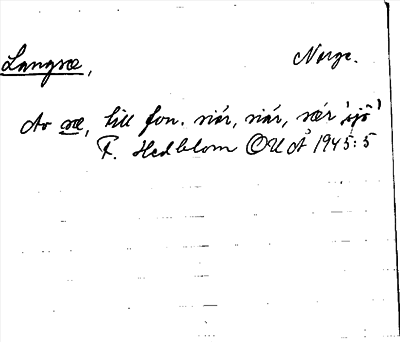 Langsæ, Norge.
Av sæ, till fvn. siór, siár, sær 'sjö'
F. Hedblom OUÅ 1945:5